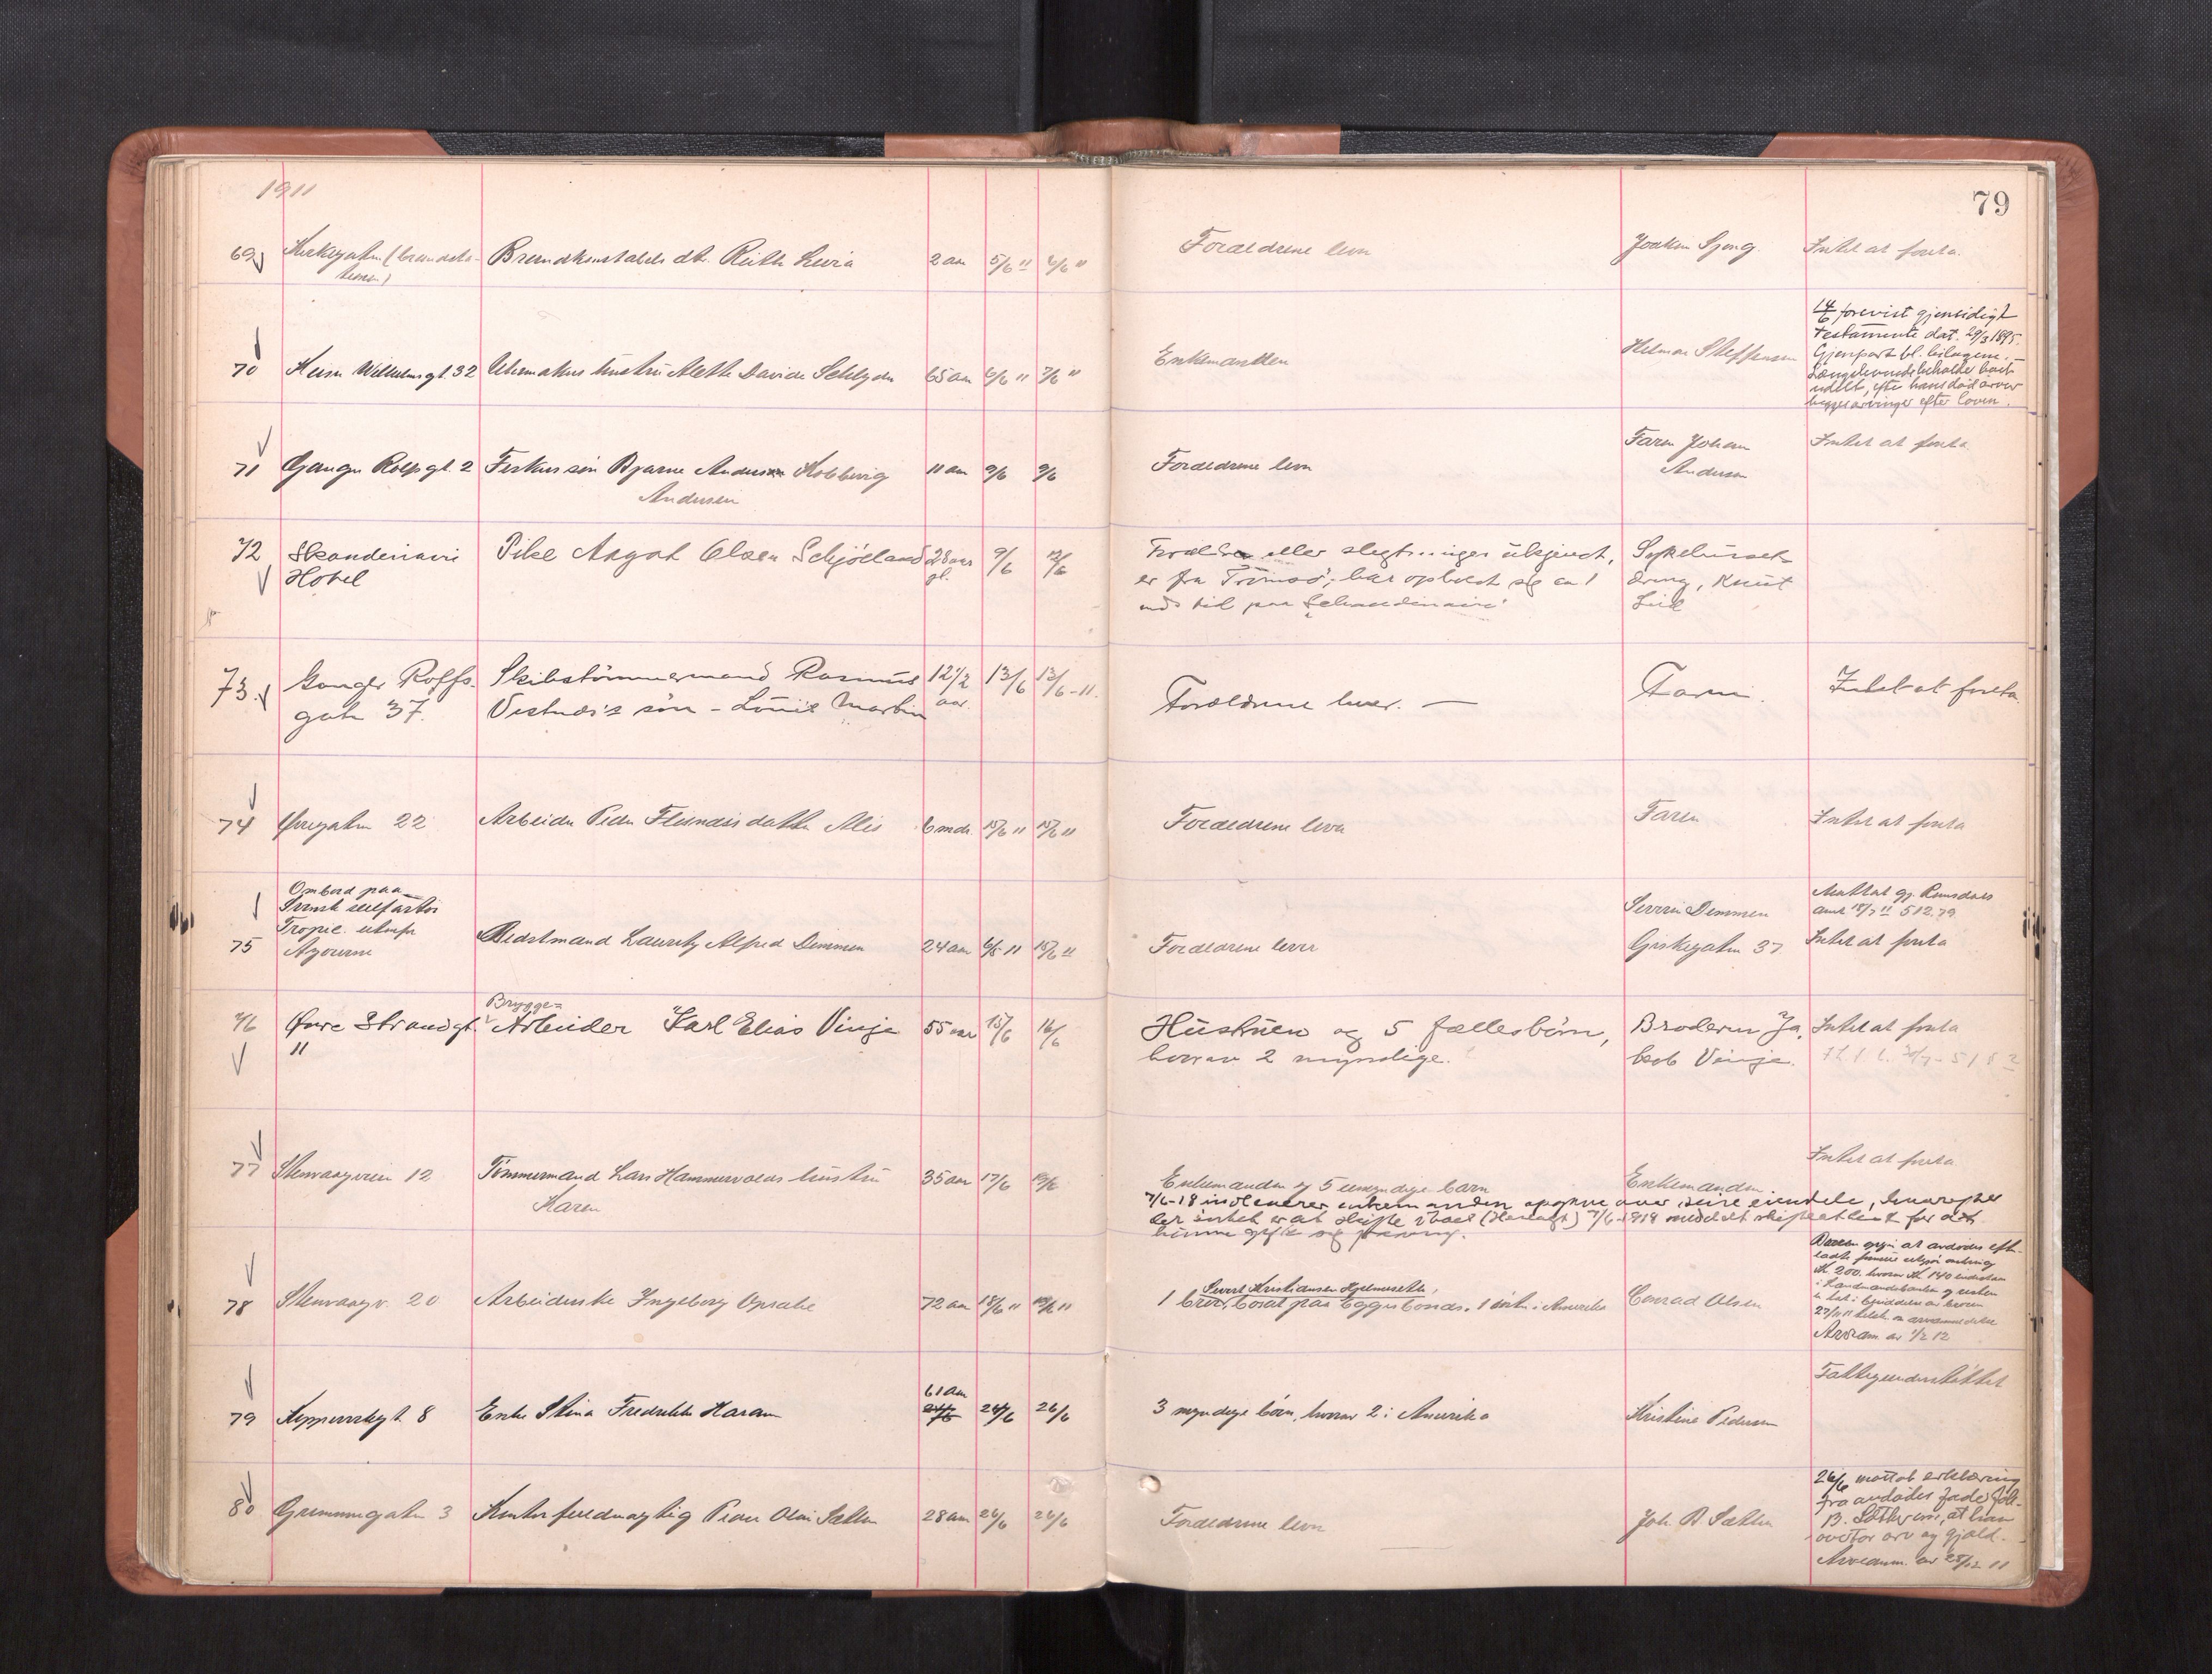 1911
79
69 Kirkegaten (brandsta-
tionen)
Brandkonstabels dt. Ruth Livia
2 aar 5/6 11 6/6 11
Forældrene lever
Joakim Sjong
Intet at foreta.
70 Keiser Wilhelmsgt. 32
Uhrmakers hustru Alethe Davida
65 aar 6/6 11 7/6 11
Enkemanden
Hilmar Steffensen
14/6 forevist gjensidigt
Testamente dat. 29/3 1895.
Gjenpart bl. bilagene. –
Længstlevende beholder boet
udelt, efter hans død arver
begges arvinger efter loven.
71 Ganger Rolfs gt. 2
Fiskers søn Bjarne Andersen Kobbevig
Andersen
11 aar 9/6 9/6
Forældrene lever
Faren Johan
Andersen
Intet at foreta
72 Skandinavi
Hotel
Pike Aagot Olsen
28 aar
gl.
9/6
Forældre eller slegtninger ukjendt,
er fra Tromsø, har opholdt sig ca 1
tid paa Schandinavie
Sykehusets
Knut
73. Ganger Rolfs-
gate 37.
Skibstømmermand Rasmus
Vestnæs's søn – Louis Martin
12 1/2
aar.
13/6 13/6 – 11.
Forældrene lever. —
Faren.
Intet at foreta
74 Øvregaten 22
Arbeider Peder datter Alis
6 mdr. 15/6 11 15/6 11
Forældrene lever
Faren
Intet at foreta
75 Ombord paa
Tropic.
Azorerne
Lauritz Alfred Dimmen
24 aar 6/5 11 15/6 11
Forældrene lever
Severin Dimmen
Giskegaten 37
Mottat gj. Romsdals
amt 18/7 11 512.79
Intet at foreta
76 Øvre Strandgt.
11
Brygge=
Arbeider Karl Elias Vinje
55 aar 15/6 16/6
Hustruen og 5 fællesbørn,
hvorav 2 myndige.
Broderen Ja-
kob Vinje.
Intet at foreta
77 Stenvaagveien 12
Tømmermand Lars Hammervolds hustru
Karen
35 aar 17/6
Enkemanden og 5 umyndige barn
Enkemanden
Intet at foreta
7/6-18 indleverer enkemanden opgave over sine eiendele, hvorefter
der intet er at skifte i boet 7/6-1918 meddelt skifteattest for at
kunne gifte sig paany.
78 Stenvaagv. 20
Arbeiderske Ingeborg Opsahl
72 aar 18/6 11
Sivert Kristiansen
1 bror, bosat paa Eggesbønes. 1 søster i Amerika
Conrad Olsen
at avdødes efter-
ladte formue utgjør omkring
Kr. 200. hvorav Kr. 140 indestaar
i Landmandsbanken og resten
Arveam. av 1/2 12
79 Kipperviksgt. 8
Enke Stina Fredrikke Haram
61 aar
24/6
24/6 26/6
3 myndige børn, hvorav 2 i Amerika
Kristine Pedersen
Fattigunderstøttet
80 Grimmergaten 3
Kontorfuldmægtig Peder Olai Sæther
28 aar 26/6 26/6
Forældrene lever
Joh. B Sæther
26/6 mottat erklæring
fra avdødes fader Joh.
B. Sæther om, at han
overtar arv og gjæld. –
Arveanm. av 28/12 11